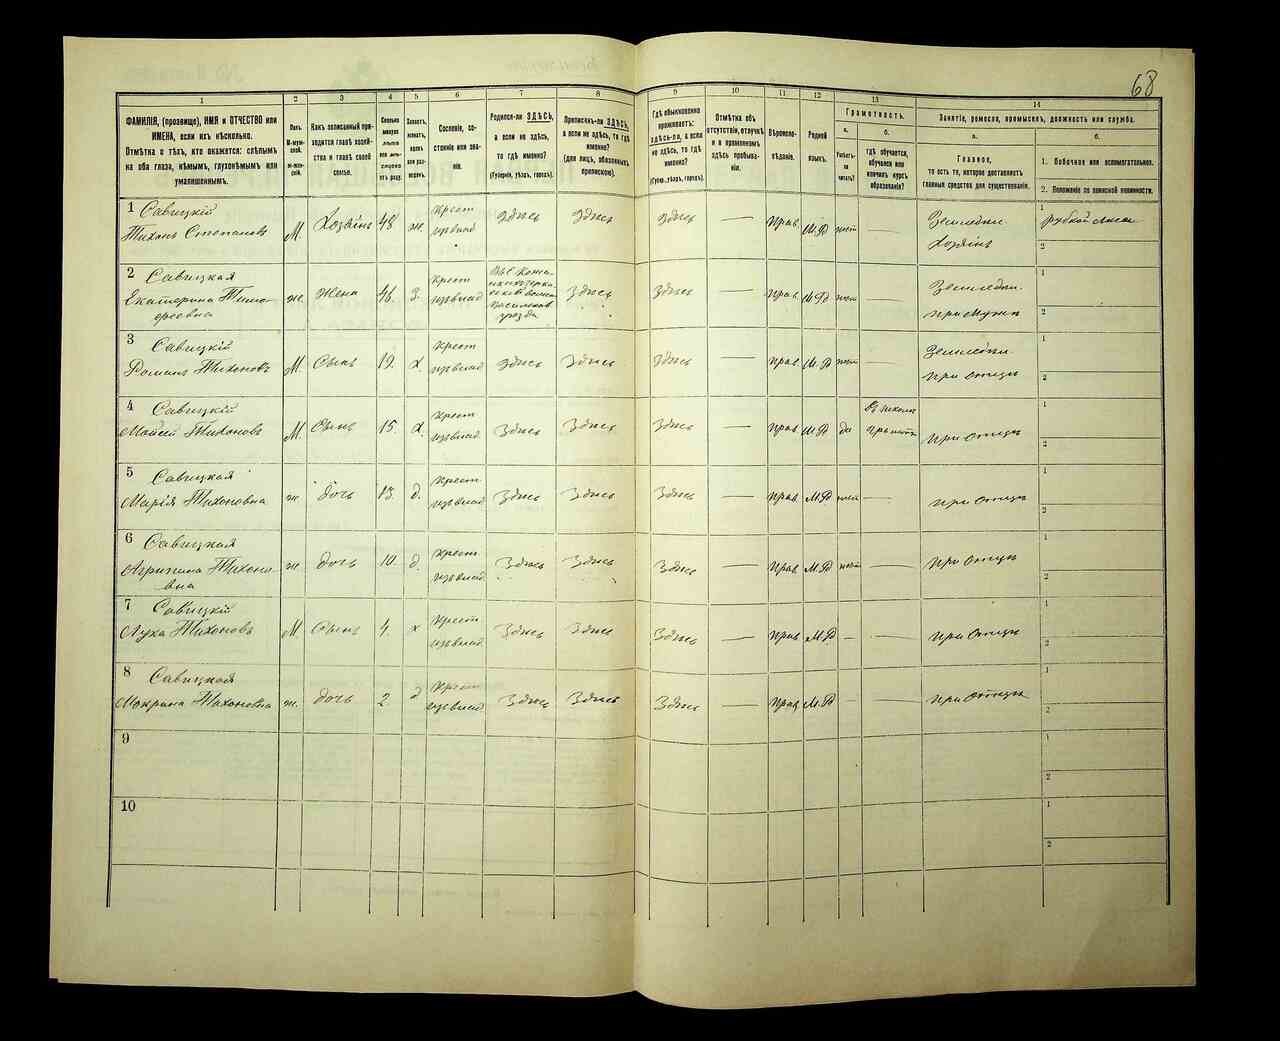 68
1
2
3
4
5
6
7
8
9
10
11
12
13
14
ФАМИЛІЯ, (прозвище), ИМЯ и ОТЧЕСТВО или
ИМЕНА, если ихъ нѣсколько.
Отмѣтка о тѣхъ, кто окажется: слѣпымъ
на оба глаза, нѣмымъ, глухонѣмымъ или
умалишеннымъ.
Полъ.
М-муж-
ской.
ж-жен-
скій.
Какъ записанный при-
ходится главѣ хозяй-
ства и главѣ своей
семьи.
Сколько
минуло
лѣтъ
или мѣ-
сяцевъ
отъ роду.
Холостъ,
женатъ,
вдовъ
или раз-
веденъ.
Сословіе, со-
стояніе или зва-
ніе.
Родился-ли ЗДѢСЬ,
а если не здѣсь,
то гдѣ именно?
(Губернія, уѣздъ, городъ).
Приписанъ-ли ЗДѢСЬ,
а если не здѣсь, то гдѣ
именно?
(для лицъ, обязанныхъ
припиской).
Гдѣ обыкновенно
проживаетъ:
здѣсь-ли, а если
не здѣсь, то гдѣ
именно?
(Губер., уѣздъ, городъ).
Отмѣтка объ
отсутствіи, отлучкѣ
и о временномъ
здѣсь пребыва-
ніи.
Вѣроиспо-
вѣданіе.
Родной
языкъ.
Грамотность.
а.
б.
Умѣетъ-
ли
читать?
гдѣ обучается,
обучался или
кончилъ курсъ
образованія?
Занятіе, ремесло, промыселъ, должность или служба.
а.
б.
Главное,
то есть то, которое доставляетъ
главныя средства для существованія.
1. Побочное или вспомогательное.
2. Положеніе по воинской повинности.
1 Савицкій
Тихонъ Степановъ
М. Хозяинъ 48 ж. Крест Здѣсь Здѣсь Здѣсь — Прав М.Р нѣт —
Хозяинъ
1
2
2 Савицкая
Екатерина Тимо
феевна
ж. Жена 46. З. Крест
Здѣсь Здѣсь — Прав М.Р нѣт —
при Мужѣ
1
2
3 Савицкій
Романъ Тихоновъ
М. Сынъ 19. Х. Крест Здѣсь Здѣсь Здѣсь — Прав М.Р нѣт —
при Отцѣ
1
2
4 Савицкій
Моисей Тихоновъ
М. Сынъ 15. Х. Крест Здѣсь Здѣсь Здѣсь — Прав М.Р да
при Отцѣ
1
2
5 Савицкая
Марія Тихоновна
ж дочь 13. д. Крест Здѣсь Здѣсь Здѣсь — Прав М.Р нѣт —
при Отцѣ
1
2
6 Савицкая
Агрипина Тихоно
вна
ж. дочь 10. д. Крест Здѣсь Здѣсь Здѣсь — Прав М.Р нѣт —
при Отцѣ
1
2
7 Савицкій
Лука Тихоновъ
М. Сынъ 4. х Крест Здѣсь Здѣсь Здѣсь — Прав М.Р - —
при Отцѣ
1
2
8 Савицкая
Мокрина Тихоновна
ж. дочь 2 д Крест Здѣсь Здѣсь Здѣсь — Прав М.Р - —
при Отцѣ
1
2
9
1
2
10
1
2